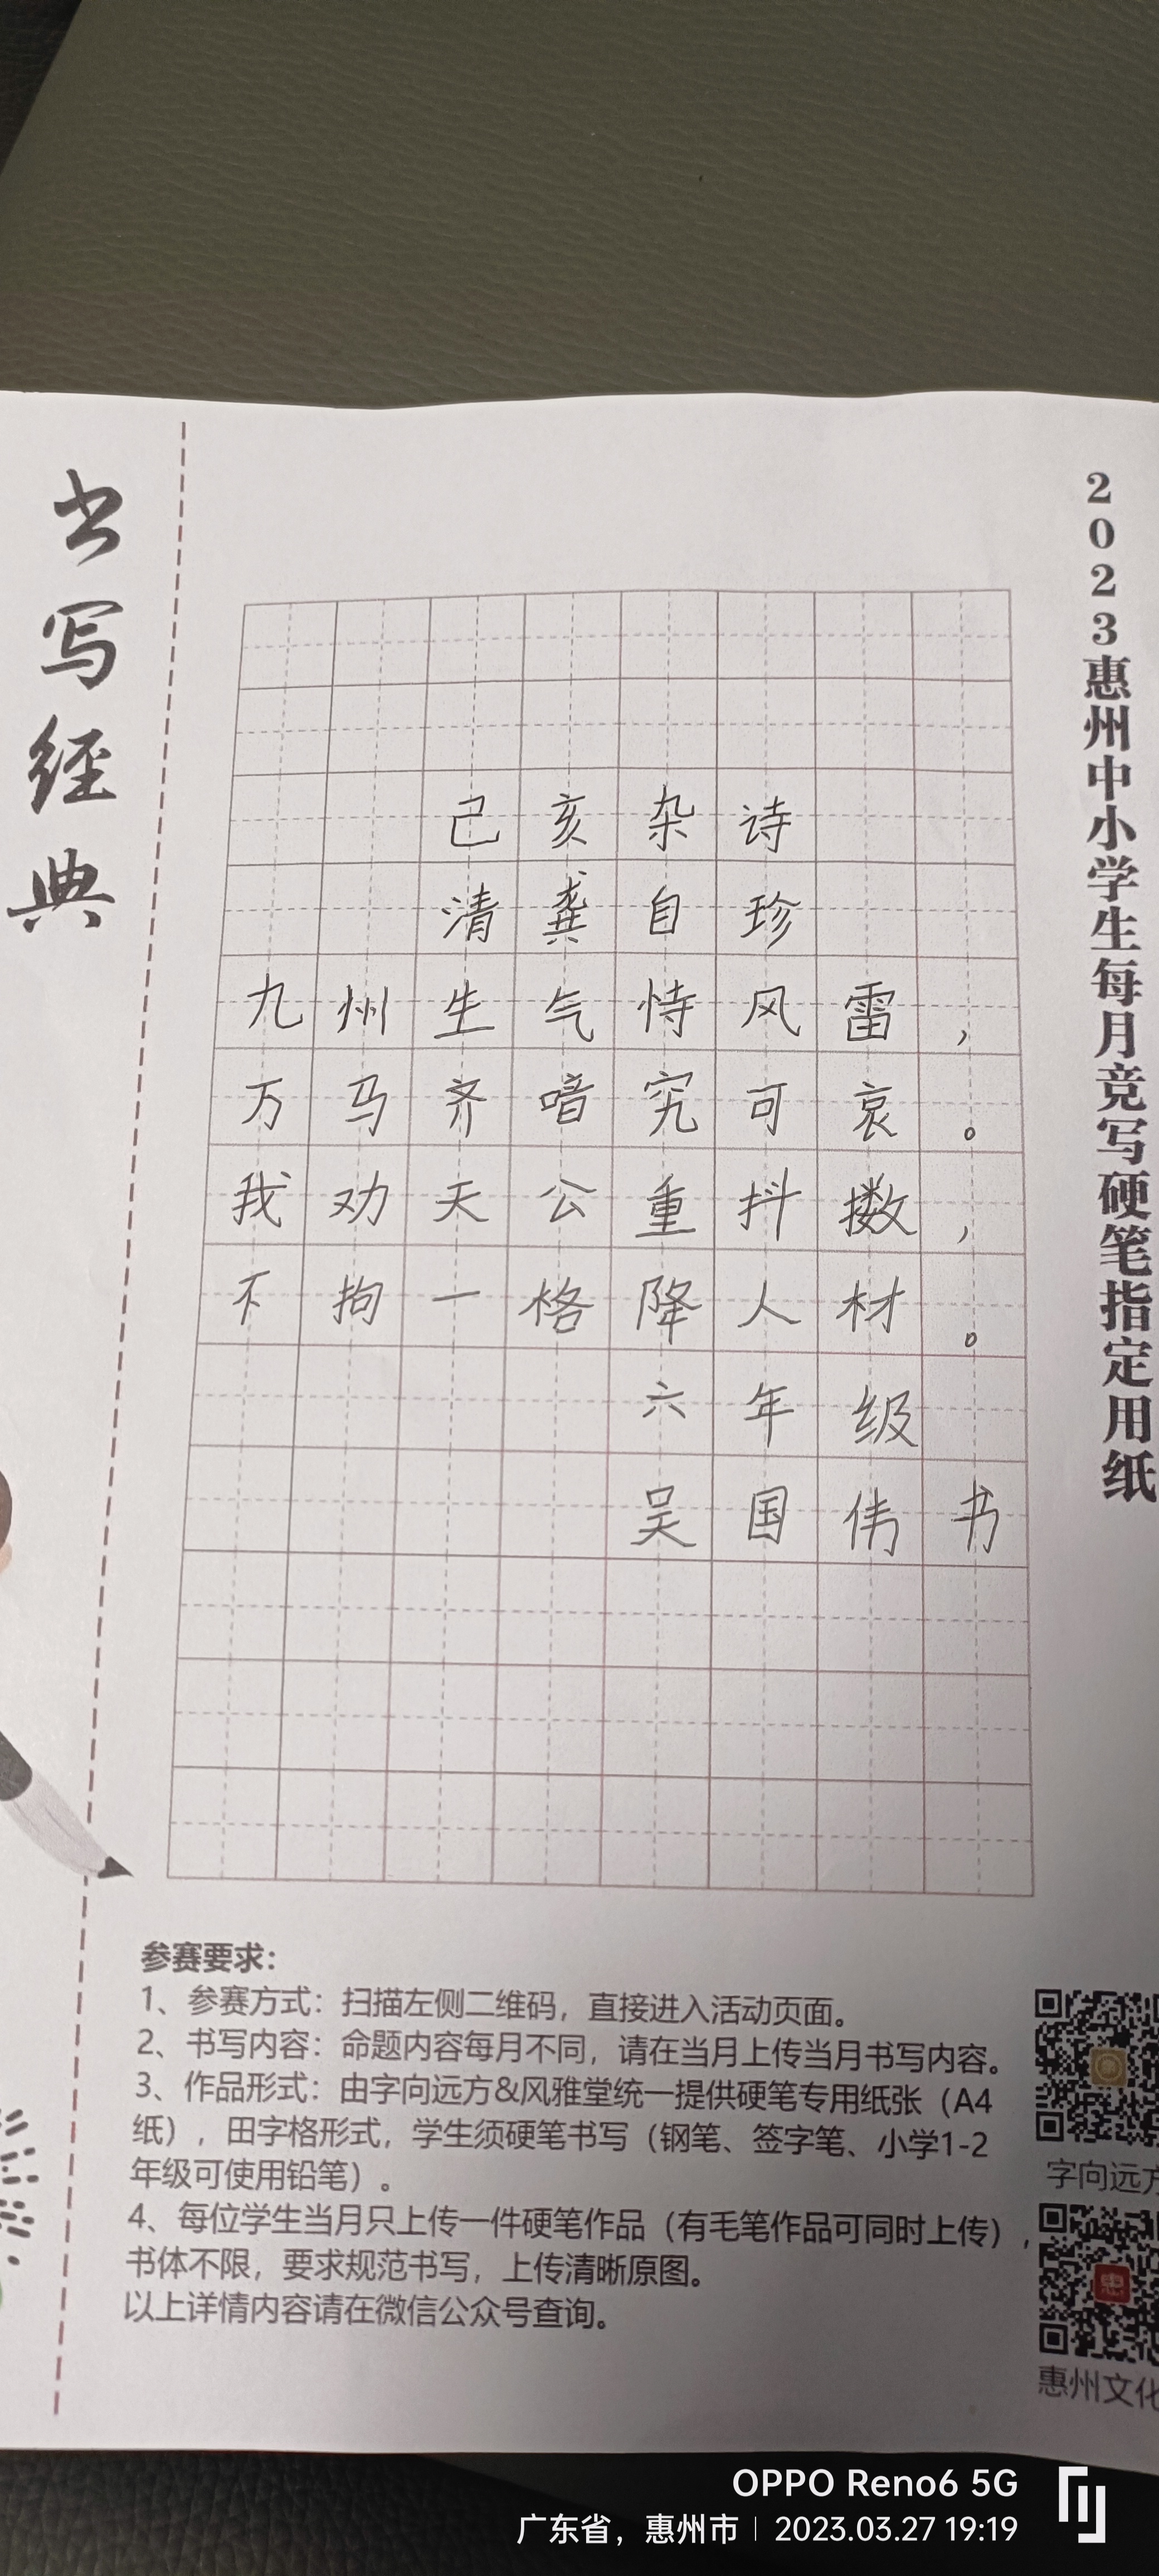 书写经典
2023惠州中小学生每月竞写硬笔指定用纸
己亥杂诗
清龚自珍
九州生气恃风雷，
万马齐喑究可哀。
我劝天公重抖擞，
不拘一格降人材。
六年级
吴国伟书
参赛要求：
1、参赛方式：扫描左侧二维码，直接进入活动页面。
2、书写内容：命题内容每月不同，请在当月上传当月书写内容。
3、作品形式：由字向远方&风雅堂统一提供硬笔专用纸张（A4
纸），田字格形式，学生须硬笔书写（钢笔、签字笔、小学1-2
年级可使用铅笔）。
4、每位学生当月只上传一件硬笔作品（有毛笔作品可同时上传），
书体不限，要求规范书写，上传清晰原图。
以上详情内容请在微信公众号查询。
字向远方
惠州文化
OPPO Reno6 5G
广东省，惠州市 | 2023.03.27 19:19